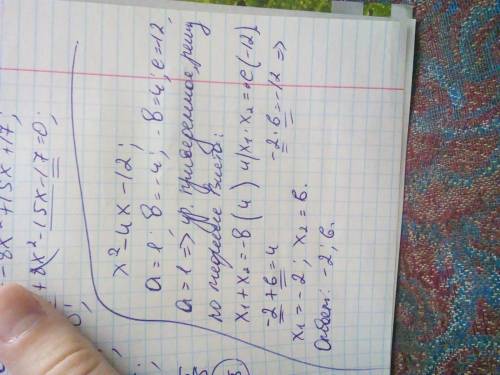 -8x²+15x+17;
+8x²-15x-17=0;
x²-4x-12;
a=1; в=-4; -в=4; с=12;
a=1 => ур. приведенное, решу
по теореме Виета:
x₁+x₂=-в(4) и x₁·x₂=с(-12)
-2+6=4 -2·6=-12 =>
x₁=-2; x₂=6.
Ответ: -2; 6.